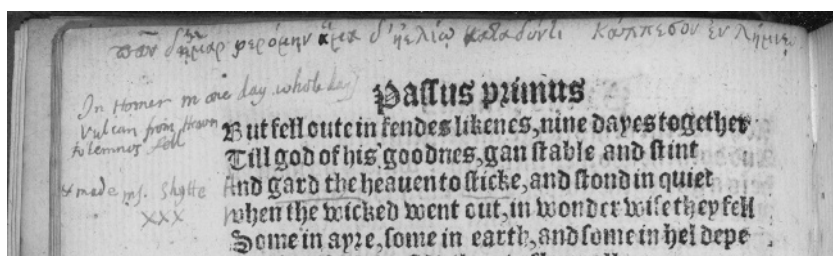 πᾶν δ' ἦμαρ φερόμην ἅμα δ' ἠελίῳ καταδύντι κάππεσον ἐν Λήμνῳ
In Homer in one day whole day
Vulcan from Heven
to lemnos fell
& made ms. Shytte
XXX
Passus primus
But fell oute in fendes likenes, nine dayes together
Till god of his goodnes, gan stable and stint
And gard the heauen to sticke, and stond in quiet
when the wicked went out, in wonder wise they fell
Some in ayre, some in earth, and some in hel depe